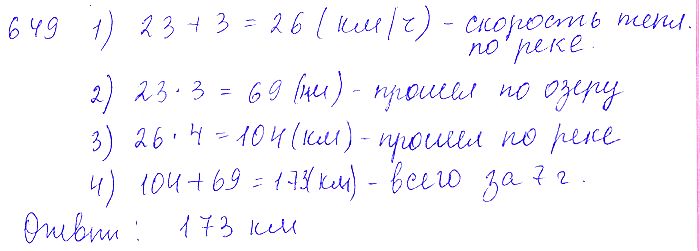 649 1) 23 + 3 = 26 (км/ч) - скорость тепл.
по реке.
2) 23 · 3 = 69 (км) - прошел по озеру
3) 26 · 4 = 104 (км) - прошел по реке
4) 104 + 69 = 173 (км) - всего за 7 г.
Ответ: 173 км